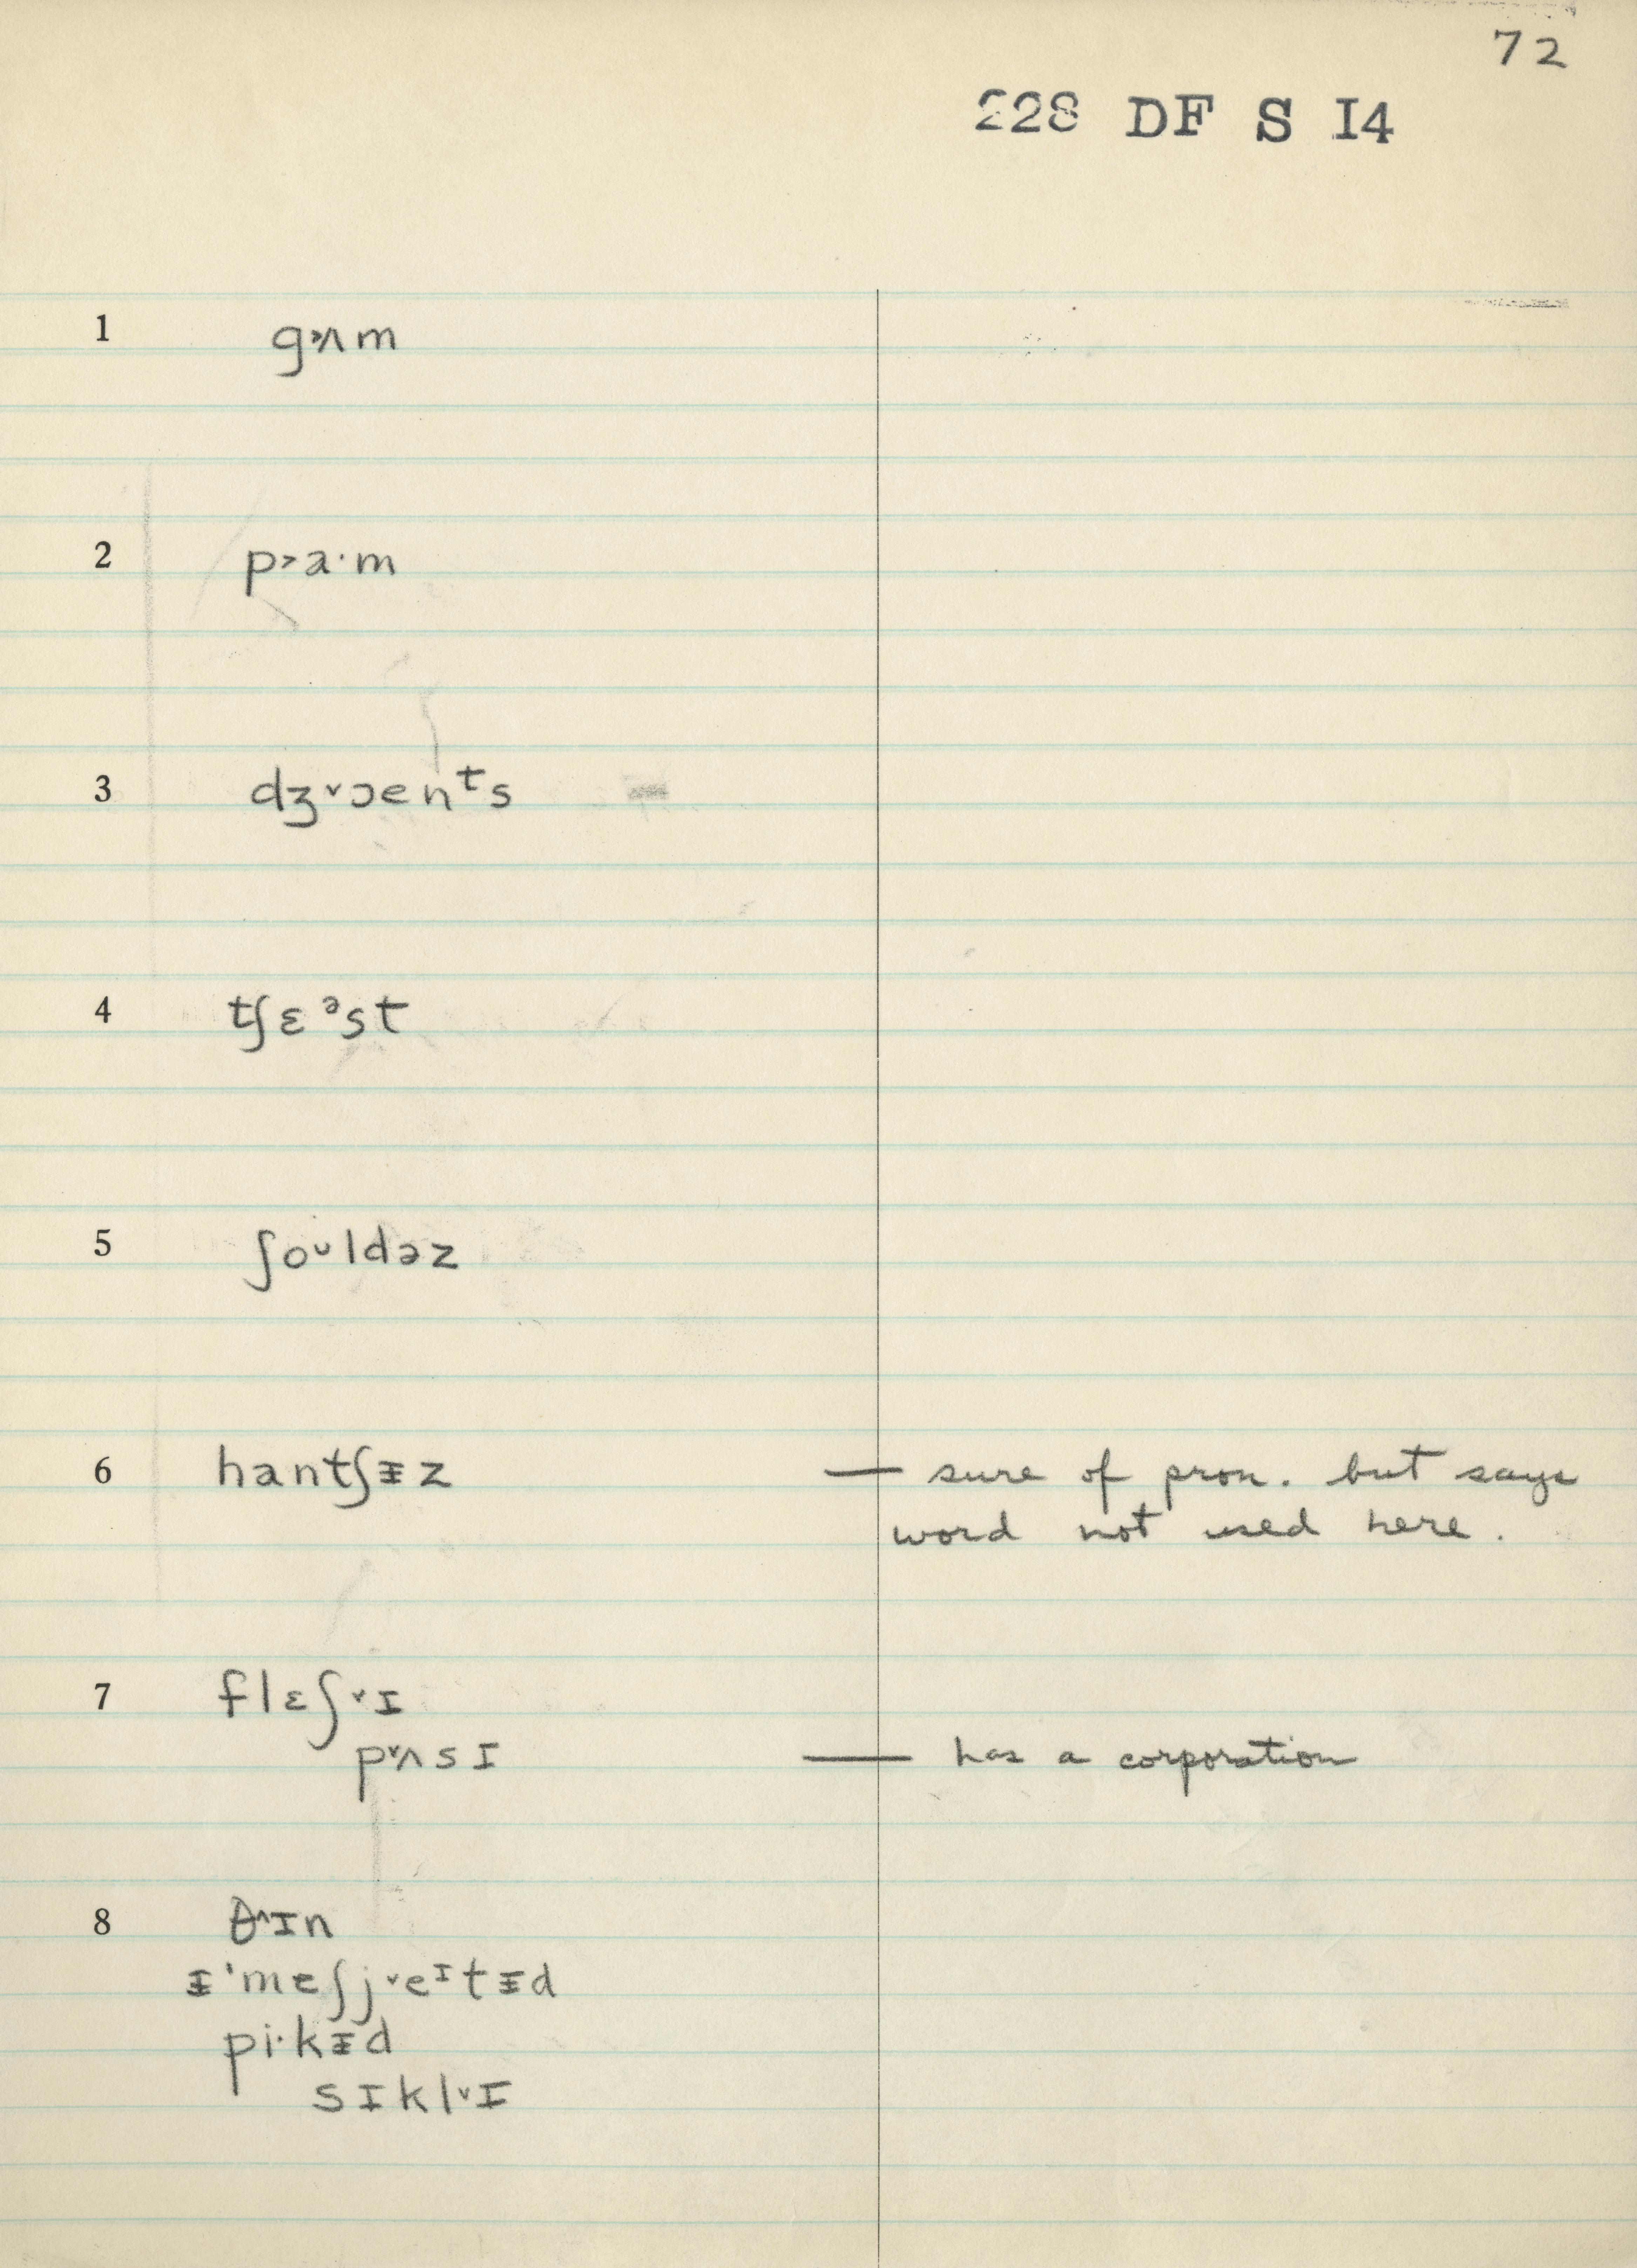 72
228 DF S I4
1 g˃ʌm
2 p˃a·m
3 dʒ˅ɔenᵗs
4 tʃɛᵊst
5 ʃoᴜldəz
6 hantʃᵻz — sure of pron. but says
word not used here.
7 flɛʃ˅ɪ
p˅ʌsɪ — has a corporation
8 θ^ɪn
ᵻ'meʃj˅eᶦtᵻd
pi·kᵻd
sɪkl˅ɪ